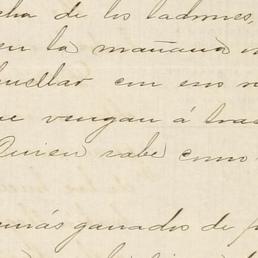 cha de los ladrones,
en la mañana
huellar con eso
ue vengan á tras
Quien sabe como
emás ganados de